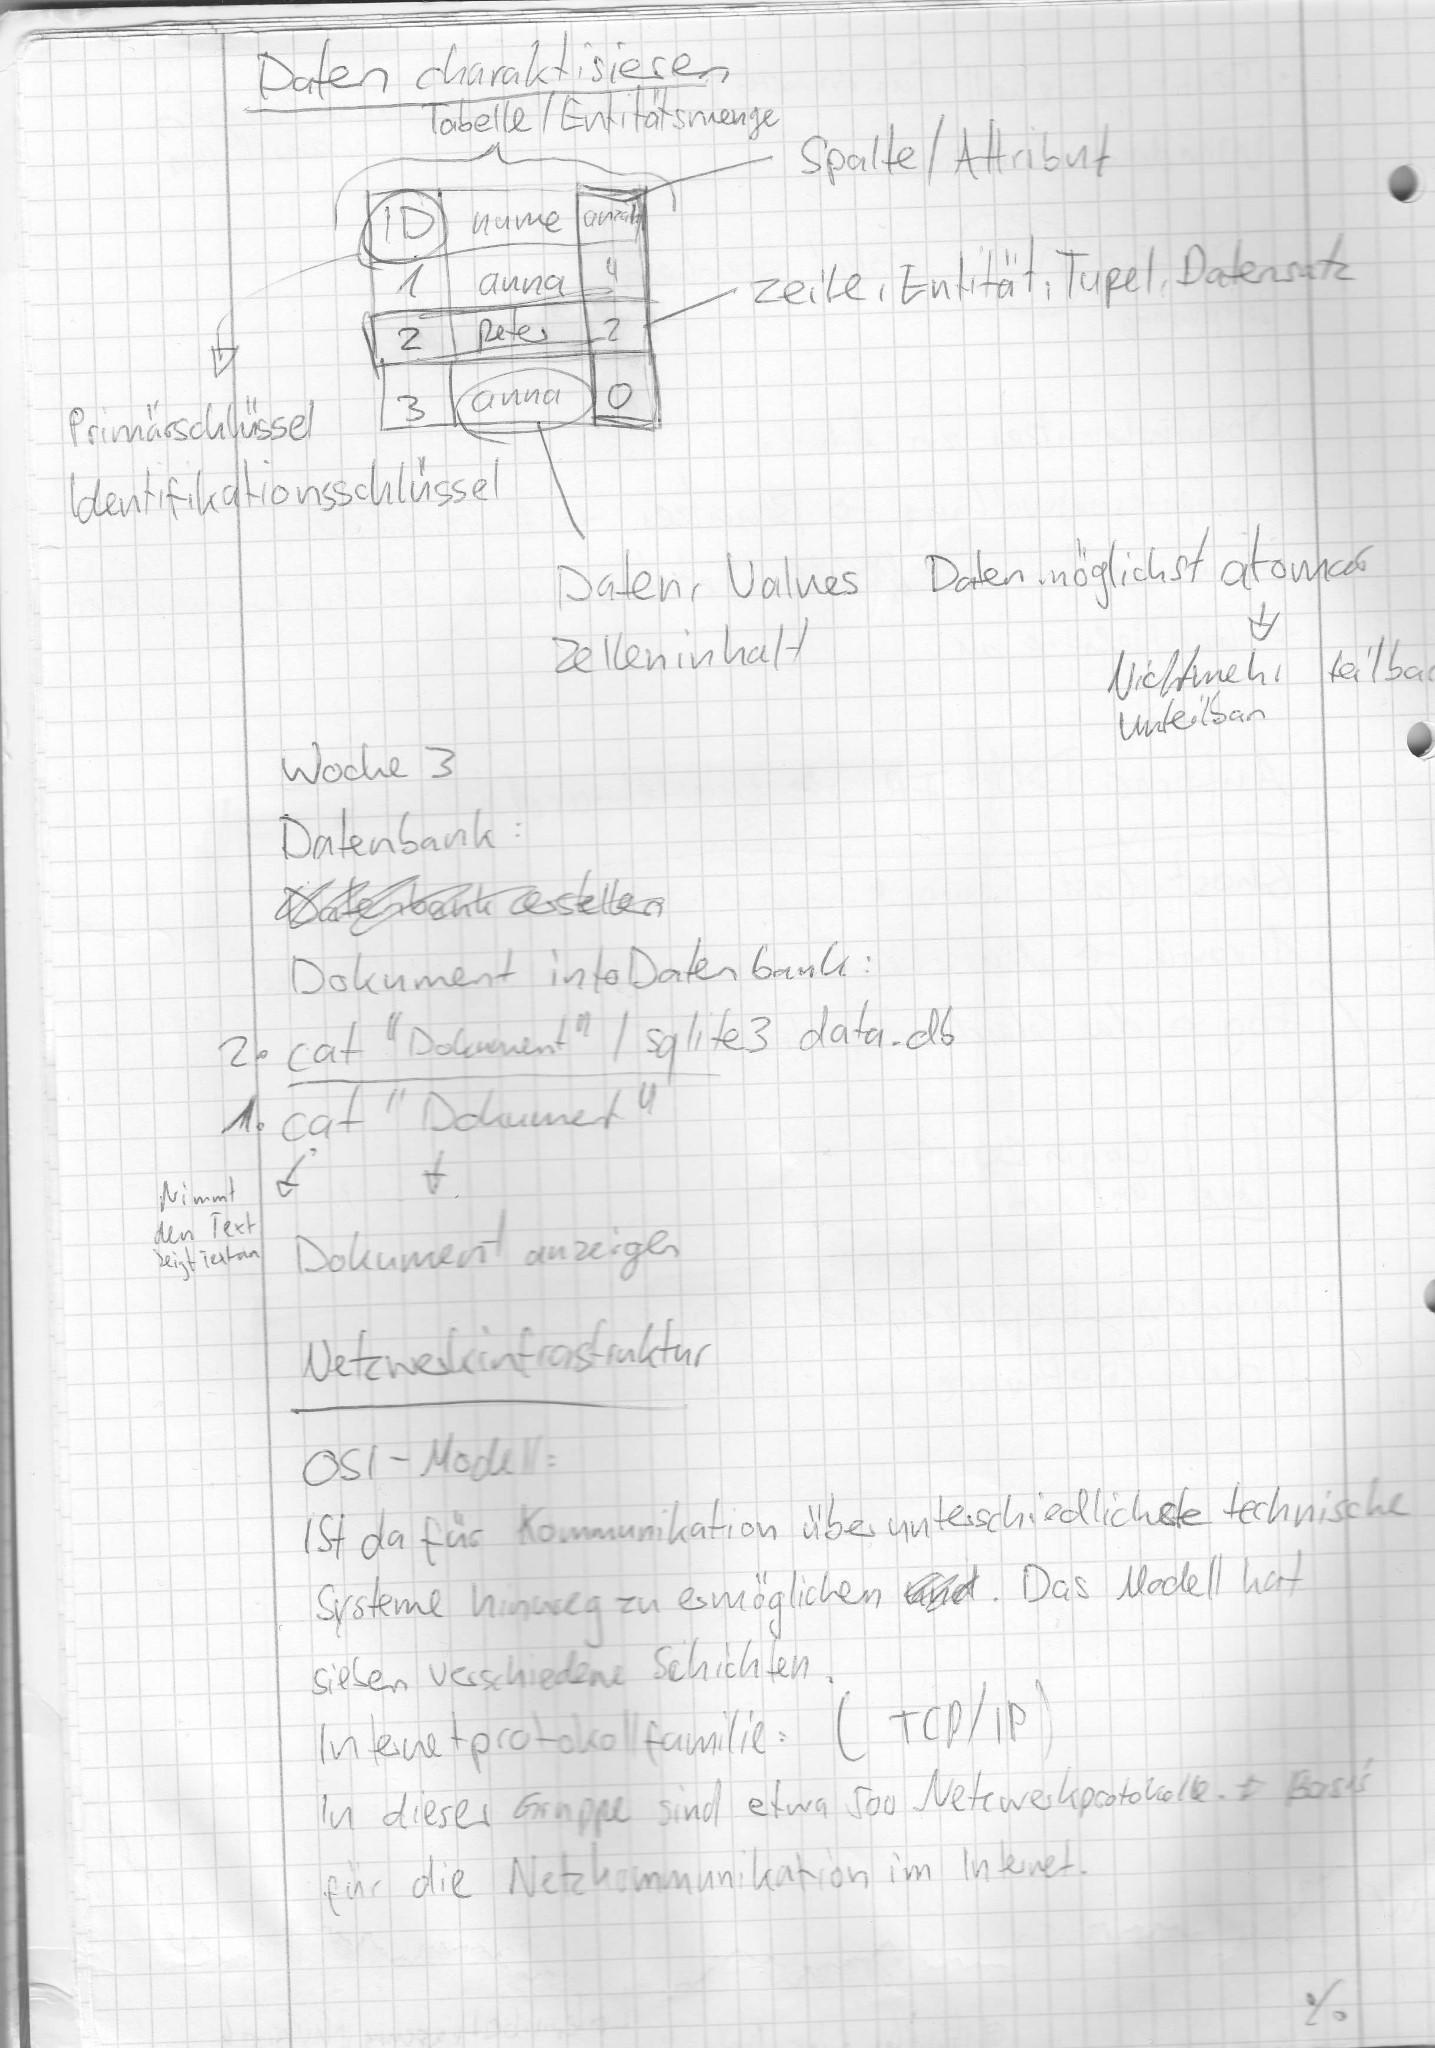 Daten charaktisieren
Tabelle/Entitätsmenge
Spalte/Attribut
ID name anzahl
1 anna 4
Zeile, Entität, Tupel, Datensatz
2 Peter 2
3 anna 0
Primärschlüssel
Identifikationsschlüssel
Daten, Values Daten möglichst atomar
Zelleninhalt
Nichtmehr teilbar
unteilbar
Woche 3
Datenbank:
Datenbank erstellen
Dokument into Datenbank:
2. cat "Dokument" / sqlite3 data.db
1. cat "Dokument"
Nimmt
den Text
zeigt Text an
Dokument anzeigen
Netzwerkinfrastruktur
OSI-Modell:
Ist da für Kommunikation über unterschiedlichste technische
Systeme hinweg zu ermöglichen und. Das Modell hat
sieben verschiedene Schichten.
Internetprotokollfamilie: (TCP/IP)
In dieser Gruppe sind etwa 500 Netzwerkprotokolle. Basis
für die Netzkommunikation im Internet.